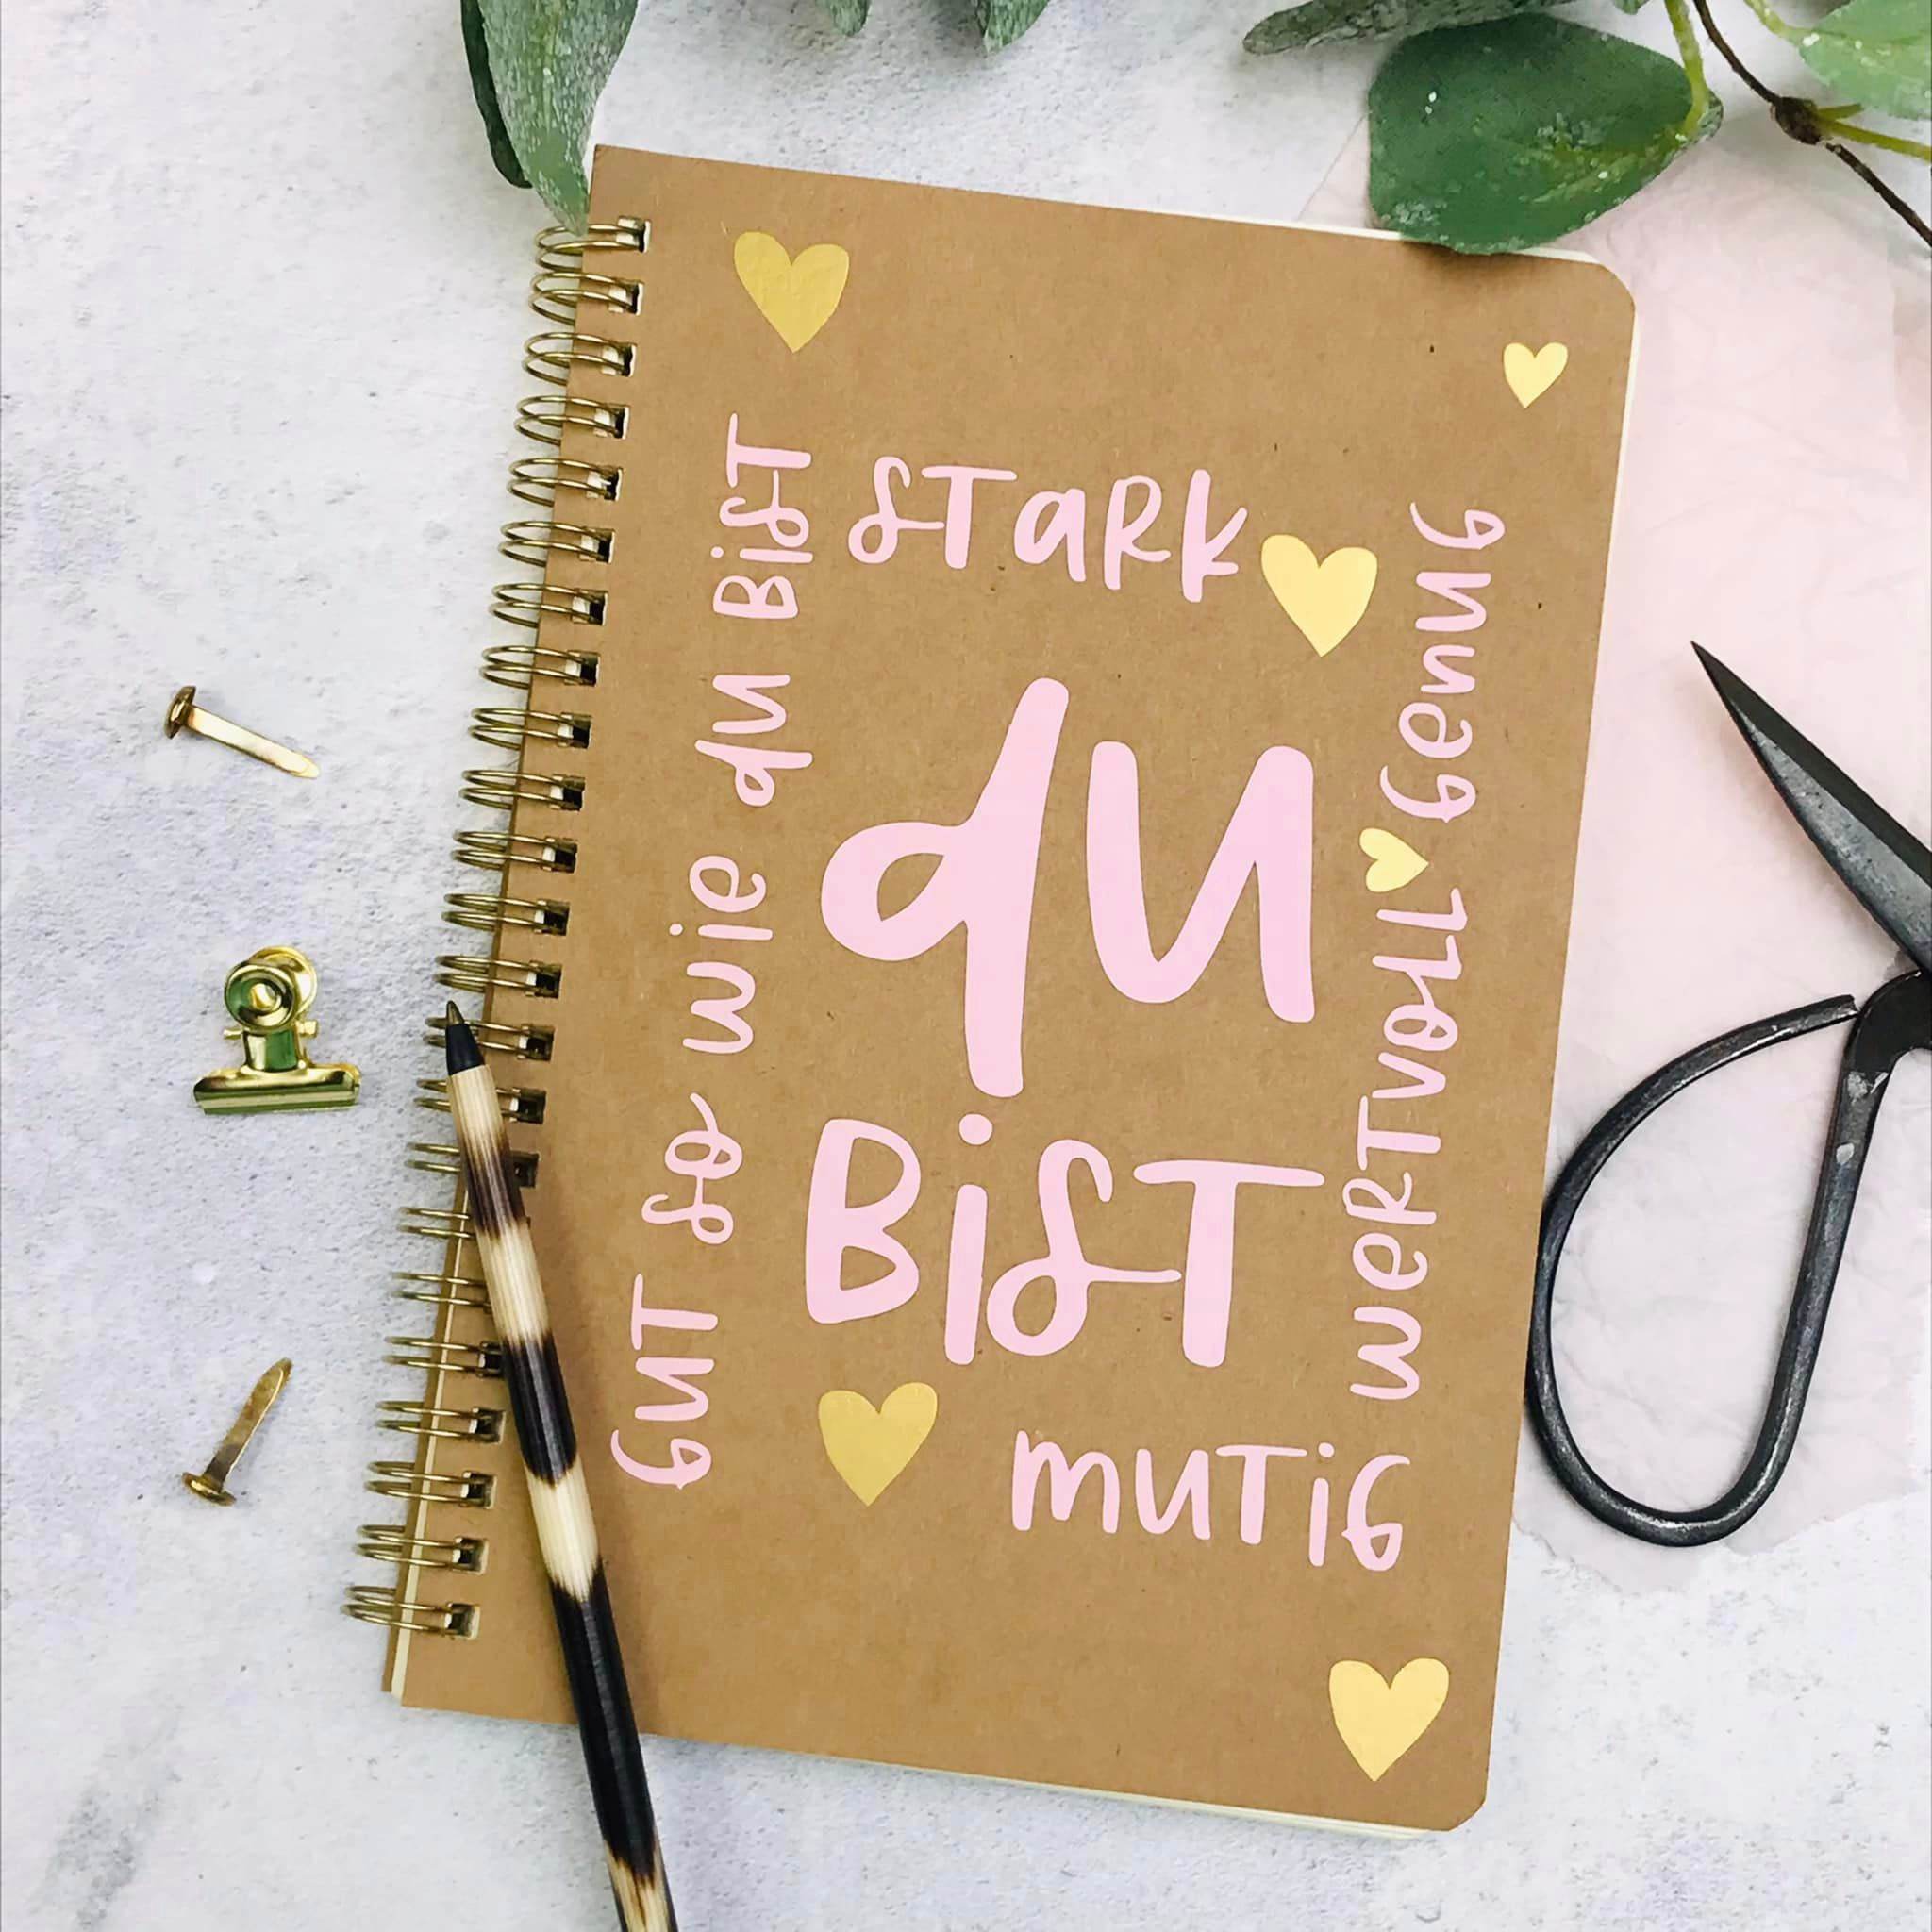 GUT SO wie du BiST
STaRK
du
BiST
muTiG
weRTVOLL GenuG